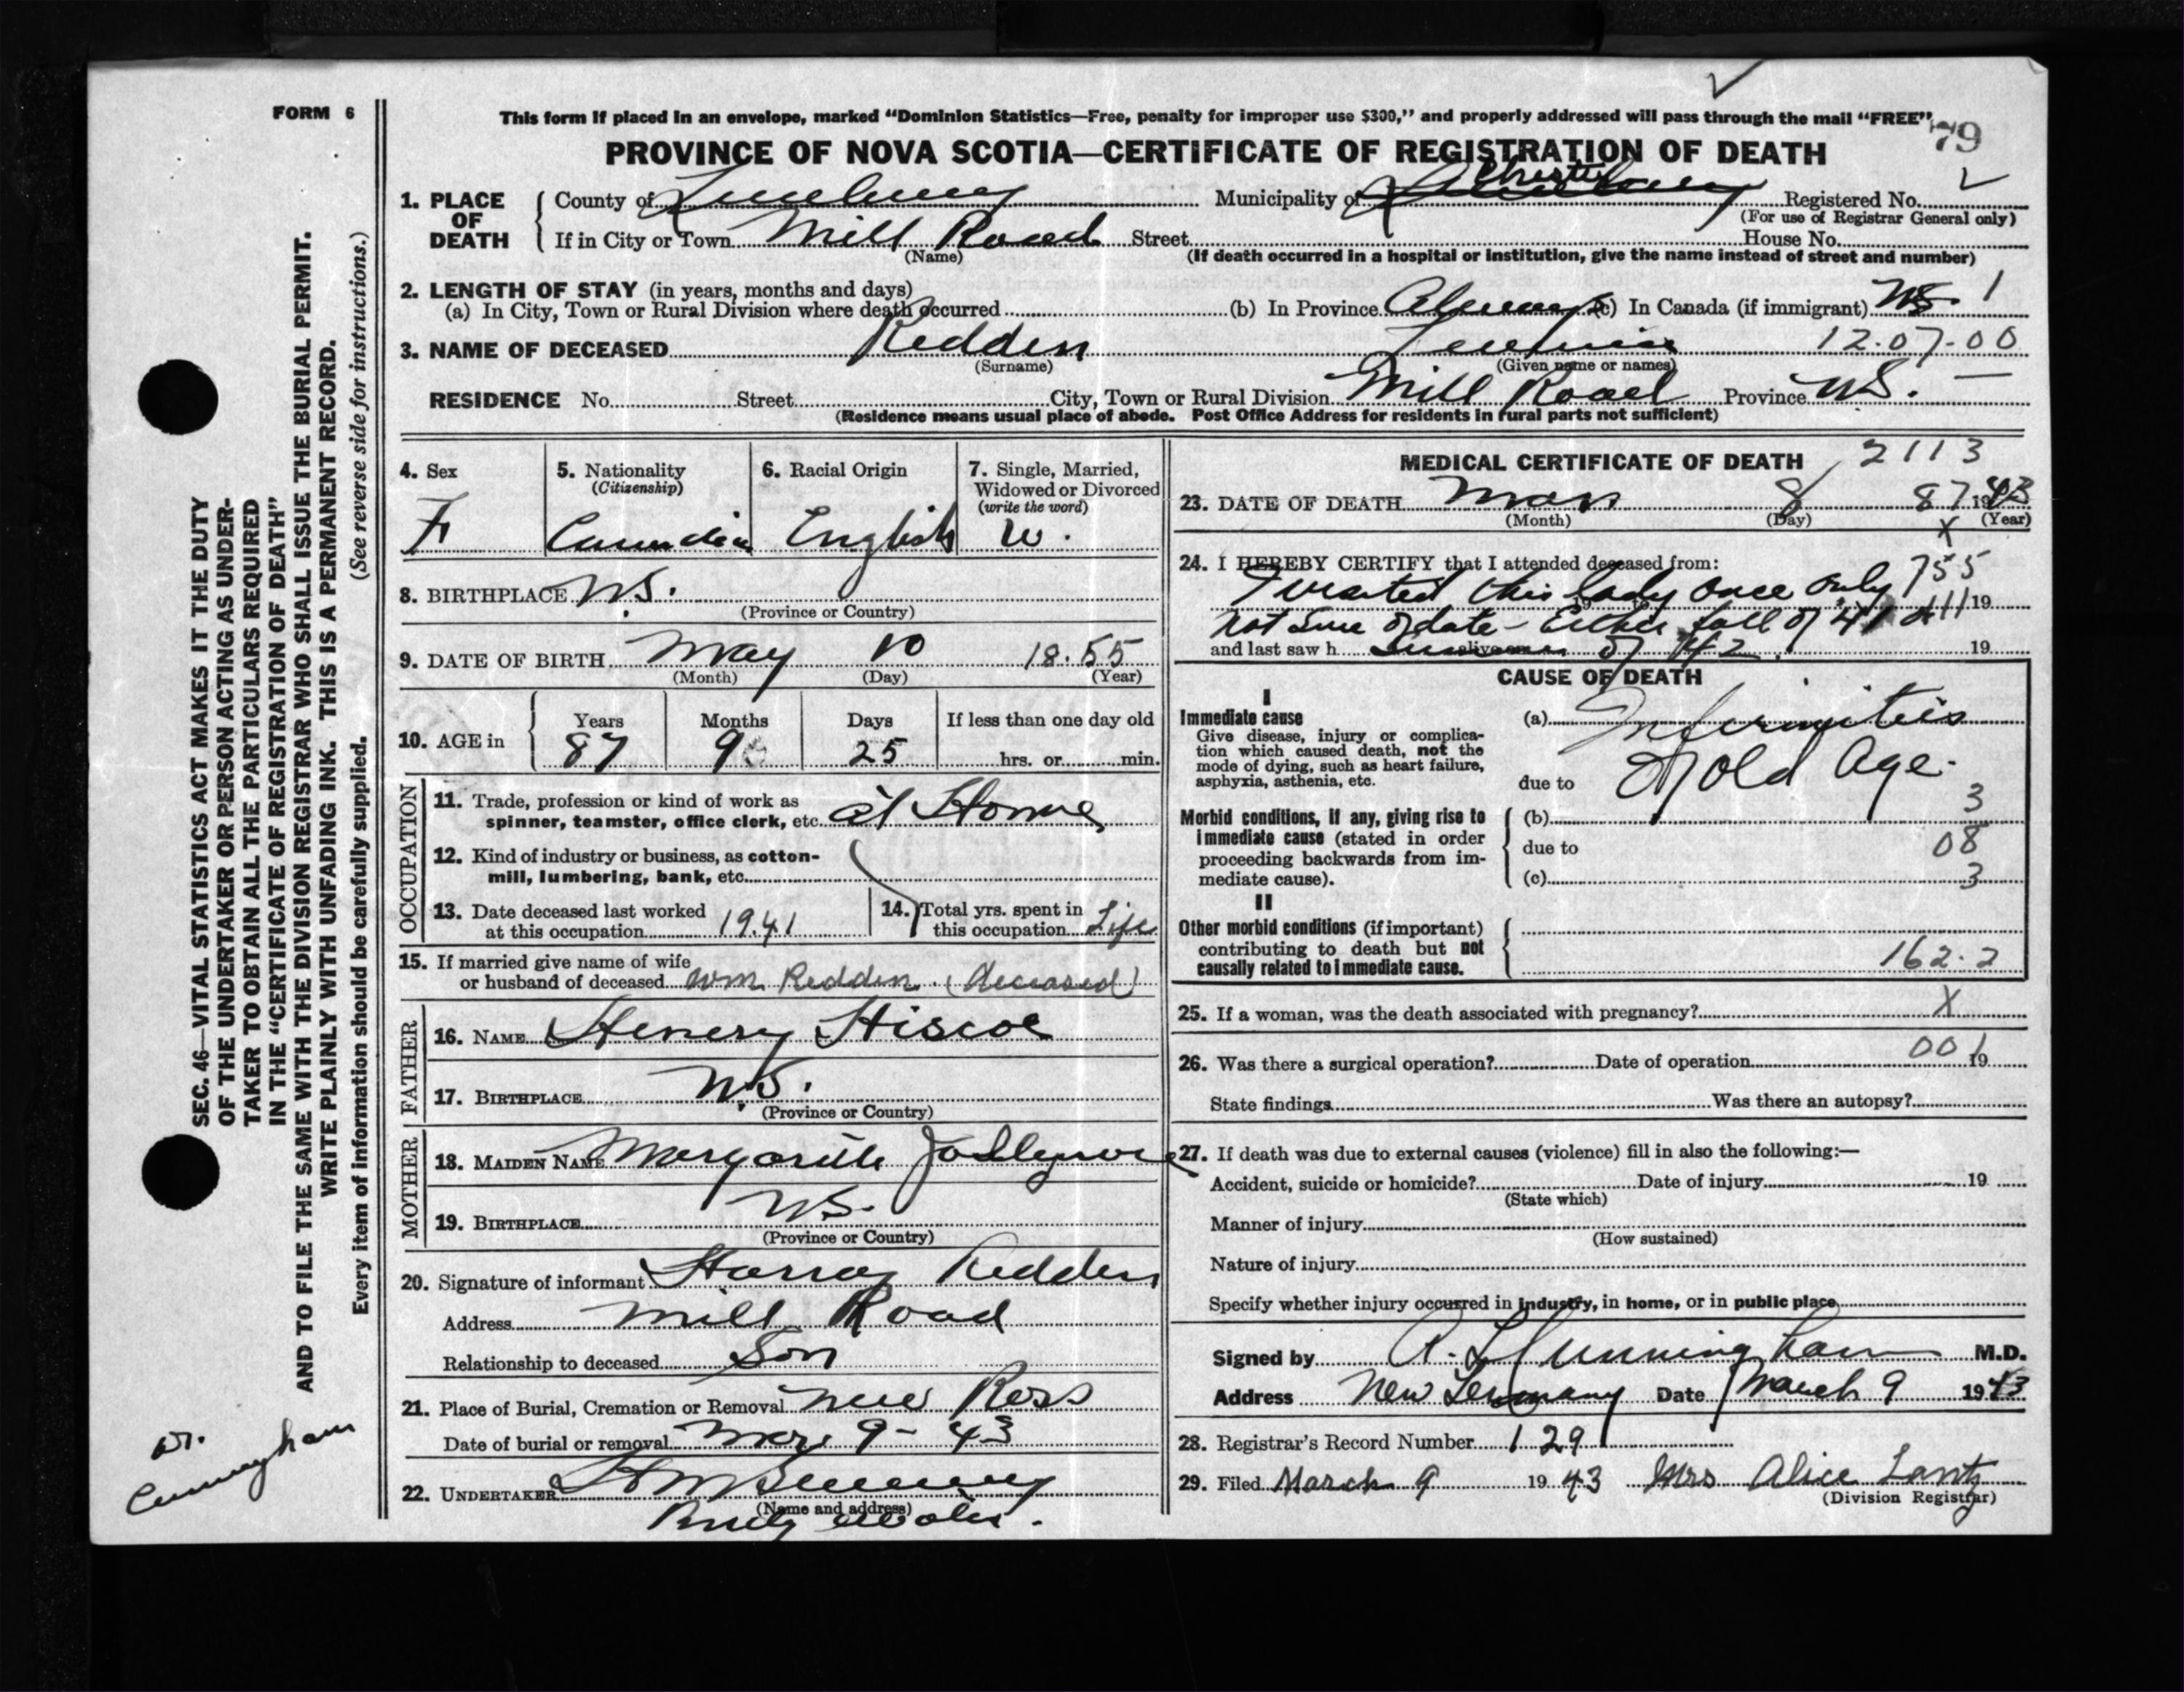 FORM 6
This form if placed in an envelope, marked "Dominion Statistics—Free, penalty for improper use $300," and properly addressed will pass through the mail "FREE"
79
PROVINCE OF NOVA SCOTIA—CERTIFICATE OF REGISTRATION OF DEATH
1. PLACE OF DEATH
County of Lunenburg Municipality of Chester Registered No.
(For use of Registrar General only)
If in City or Town Mill Road Street House No.
(Name) (If death occurred in a hospital or institution, give the name instead of street and number)
2. LENGTH OF STAY (in years, months and days)
(a) In City, Town or Rural Division where death occurred (b) In Province Always (c) In Canada (if immigrant) NS. 1
3. NAME OF DECEASED Redden 12.07-00
(Surname) (Given name or names)
RESIDENCE No. Street City, Town or Rural Division Mill Road Province NS. —
(Residence means usual place of abode. Post Office Address for residents in rural parts not sufficient)
4. Sex
F
5. Nationality
(Citizenship)
Canadian
6. Racial Origin
English
7. Single, Married,
Widowed or Divorced
(write the word)
W.
8. BIRTHPLACE N.S.
(Province or Country)
9. DATE OF BIRTH May 10 1855
(Month) (Day) (Year)
10. AGE in
Years Months Days If less than one day old
87 9 25 hrs. or min.
OCCUPATION
11. Trade, profession or kind of work as
spinner, teamster, office clerk, etc. at Home
12. Kind of industry or business, as cotton-
mill, lumbering, bank, etc.
13. Date deceased last worked
at this occupation 1941
14. Total yrs. spent in
this occupation Life
15. If married give name of wife
or husband of deceased Wm Redden. (deceased)
FATHER
16. NAME Henery Hiscoe
17. BIRTHPLACE N.S.
(Province or Country)
MOTHER
18. MAIDEN NAME
19. BIRTHPLACE NS.
(Province or Country)
20. Signature of informant Harray Redden
Address Mill Road
Relationship to deceased Son
21. Place of Burial, Cremation or Removal New Ross
Date of burial or removal Mar 9-43
22. UNDERTAKER
(Name and address)
MEDICAL CERTIFICATE OF DEATH 2113
23. DATE OF DEATH Mar 8 87 1943
(Month) (Day) (Year)
X
24. I HEREBY CERTIFY that I attended deceased from:
755
I visited this lady once only 19
not sure of date - Either fall of 41 or 19
and last saw h alive on Summer of 42. 19
CAUSE OF DEATH
I
Immediate cause
Give disease, injury or complica-
tion which caused death, not the
mode of dying, such as heart failure,
asphyxia, asthenia, etc.
(a) Infirmities
due to of old age.
Morbid conditions, if any, giving rise to
immediate cause (stated in order
proceeding backwards from im-
mediate cause).
(b) 3
due to 08
(c) 3
II
Other morbid conditions (if important)
contributing to death but not
causally related to immediate cause.
162.2
25. If a woman, was the death associated with pregnancy? X
26. Was there a surgical operation? Date of operation 001 19
State findings Was there an autopsy?
27. If death was due to external causes (violence) fill in also the following:—
Accident, suicide or homicide? Date of injury 19
(State which)
Manner of injury
(How sustained)
Nature of injury
Specify whether injury occurred in industry, in home, or in public place
Signed by Cunningham M.D.
Address New Germany Date March 9 1943
28. Registrar's Record Number 129
29. Filed March 9 1943 Mrs Alice Lantz
(Division Registrar)
SEC. 46—VITAL STATISTICS ACT MAKES IT THE DUTY
OF THE UNDERTAKER OR PERSON ACTING AS UNDER-
TAKER TO OBTAIN ALL THE PARTICULARS REQUIRED
IN THE "CERTIFICATE OF REGISTRATION OF DEATH"
AND TO FILE THE SAME WITH THE DIVISION REGISTRAR WHO SHALL ISSUE THE BURIAL PERMIT.
WRITE PLAINLY WITH UNFADING INK. THIS IS A PERMANENT RECORD.
Every item of information should be carefully supplied. (See reverse side for instructions.)
Dr.
Cunningham